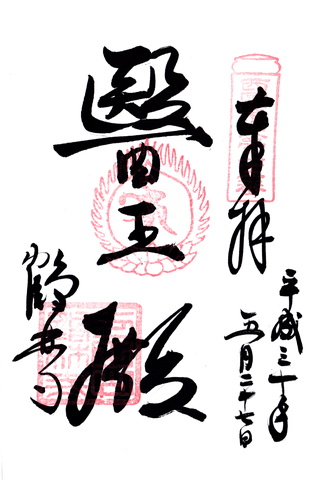 奉拝
平成三十年
五月二十七日
醫王殿
鶴林寺